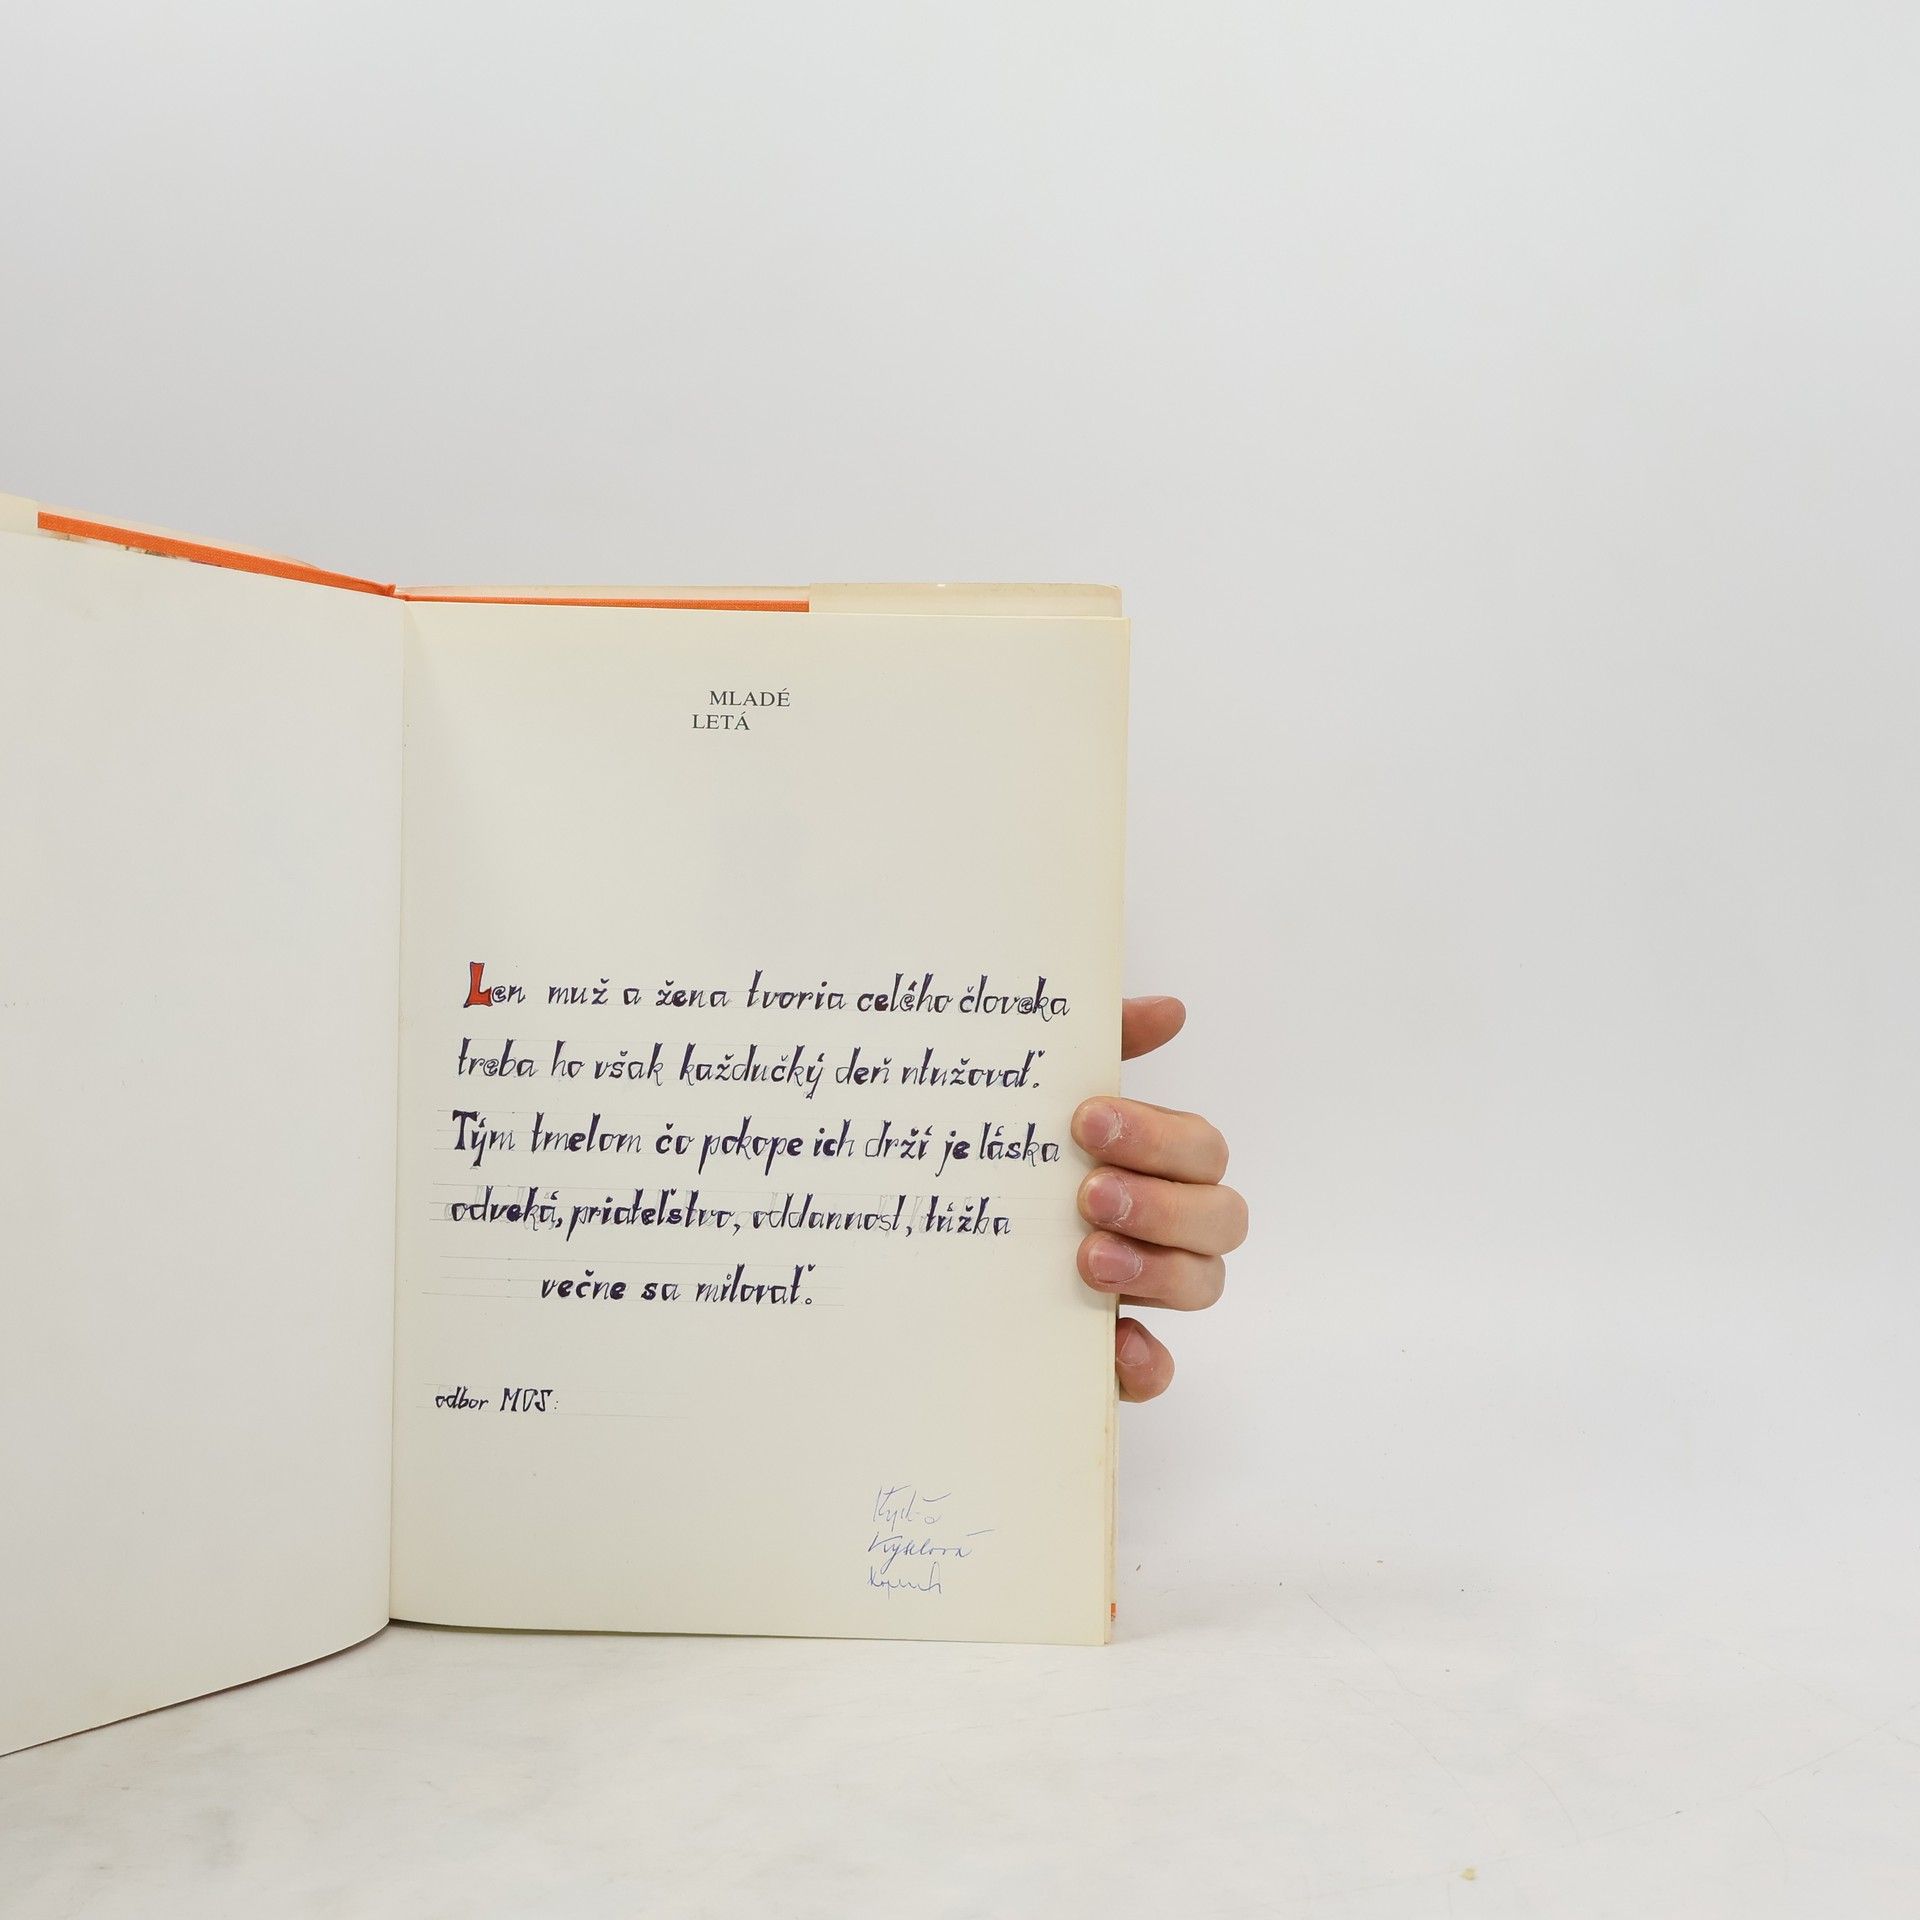 MLADÉ
LETÁ
Len muž a žena tvoria celého človeka
treba ho však každučký deň utužovať.
Tým tmelom čo pokope ich drží je láska
odveká, priateľstvo, oddannosť, túžba
večne sa milovať.
odbor MOS:
Kyselová